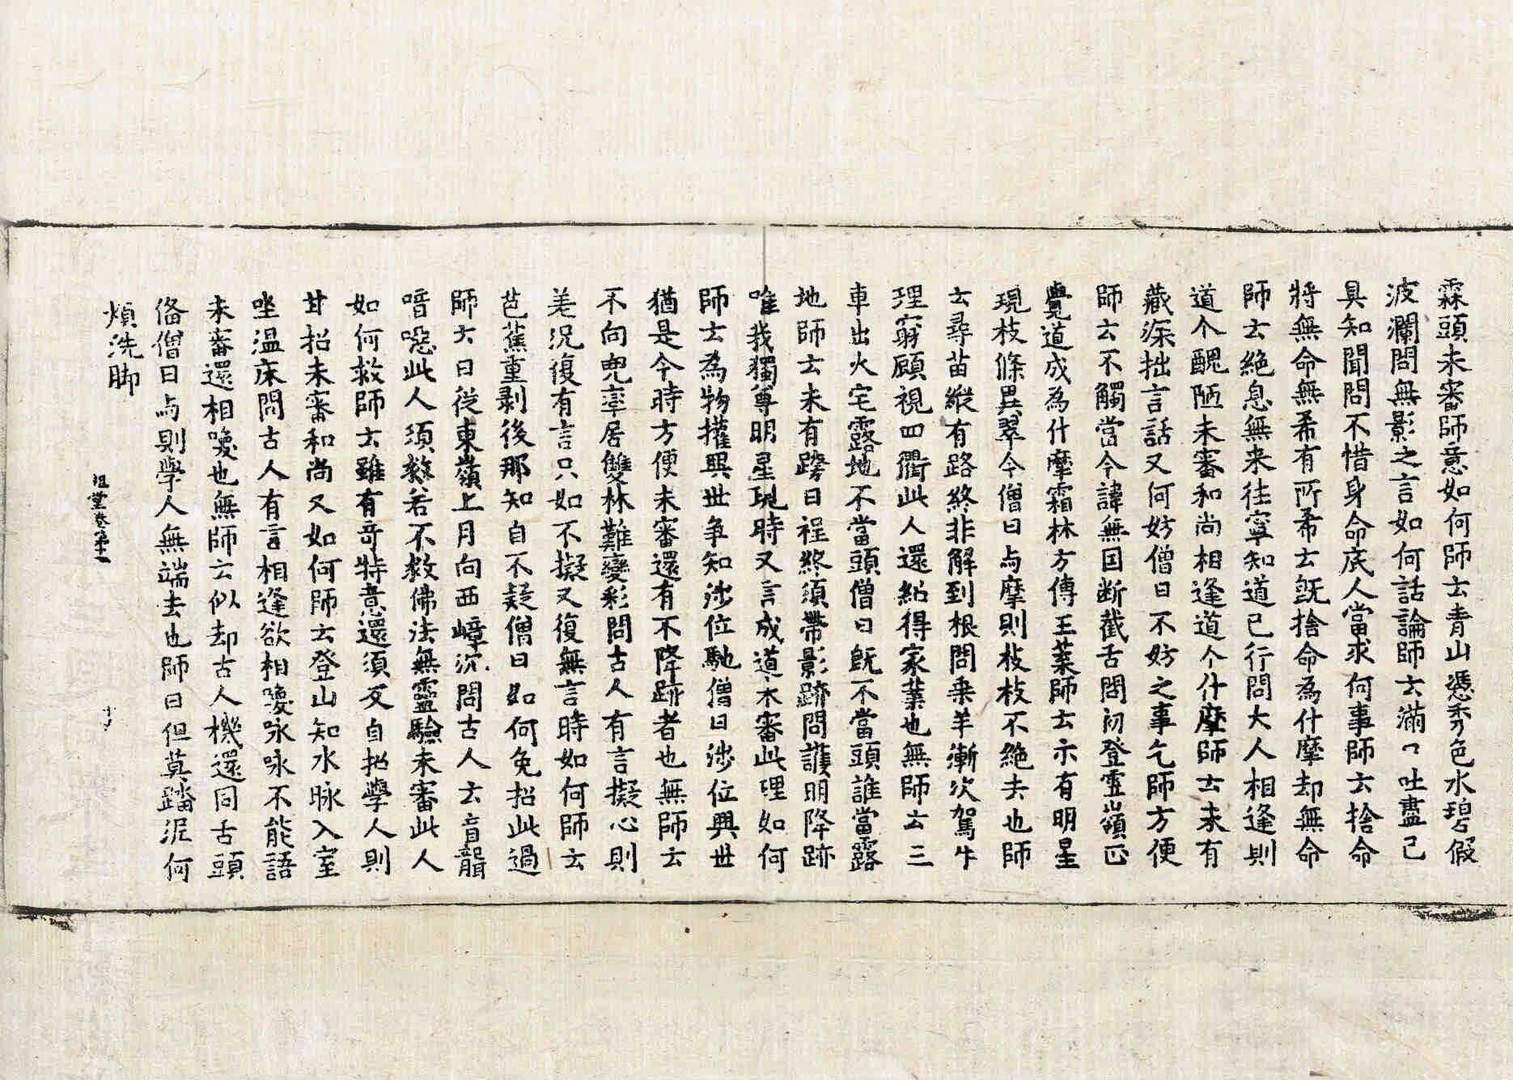 霖頭未審師意如何師云青山憑秀色水碧假
波瀾問無影之言如何話論師云滿口吐盡已
具知聞問不惜身命底人當求何事師云捨命
將無命無希有所希士旣捨命為什摩却無命
師云絶息無来往寧知道已行問大人相逢則
道个醜陋未審和尚相逢道个什摩師云未有
藏深拙言話又何妨僧曰不妨之事乞師方便
師云不觸當今諱無囯断截舌問初登霊嶺正
覺道成為什摩霜林方傳玉葉師云示有明星
現枝條異翠今僧曰与摩則枝枝不絶去也師
云尋苗縱有路終非解到根問乗羊漸次駕牛
理窮顧視四衢此人還紹得家業也無師云三
車出火宅露地不當頭僧曰旣不當頭誰當露
地師云未有跨日程終須帶影跡問護明降跡
唯我獨尊明星現時又言成道未審此理如何
師云為物攉興世争知涉位馳僧曰涉位興世
猶是今時方便未審還有不降跡者也無師云
不向兜率居雙林難變彩問古人有言擬心則
差况復有言只如不擬又復無言時如何師云
芭蕉重剥後那知自不疑僧曰如何免招此過
師云日従東嶺上月向西嶂沉問古人云音聾
喑啞此人須救若不救佛法無靈驗未審此人
如何救師云雖有竒特意還須友自招學人則
甘招未審和尚又如何師云登山知水脉入室
坐温床問古人有言相逢欲相喚咏咏不能語
未審還相喚也無師云似却古人機還同舌頭
俻僧曰与則學人無端去也師曰但莫踏泥何
煩洗脚
祖堂卷第十一